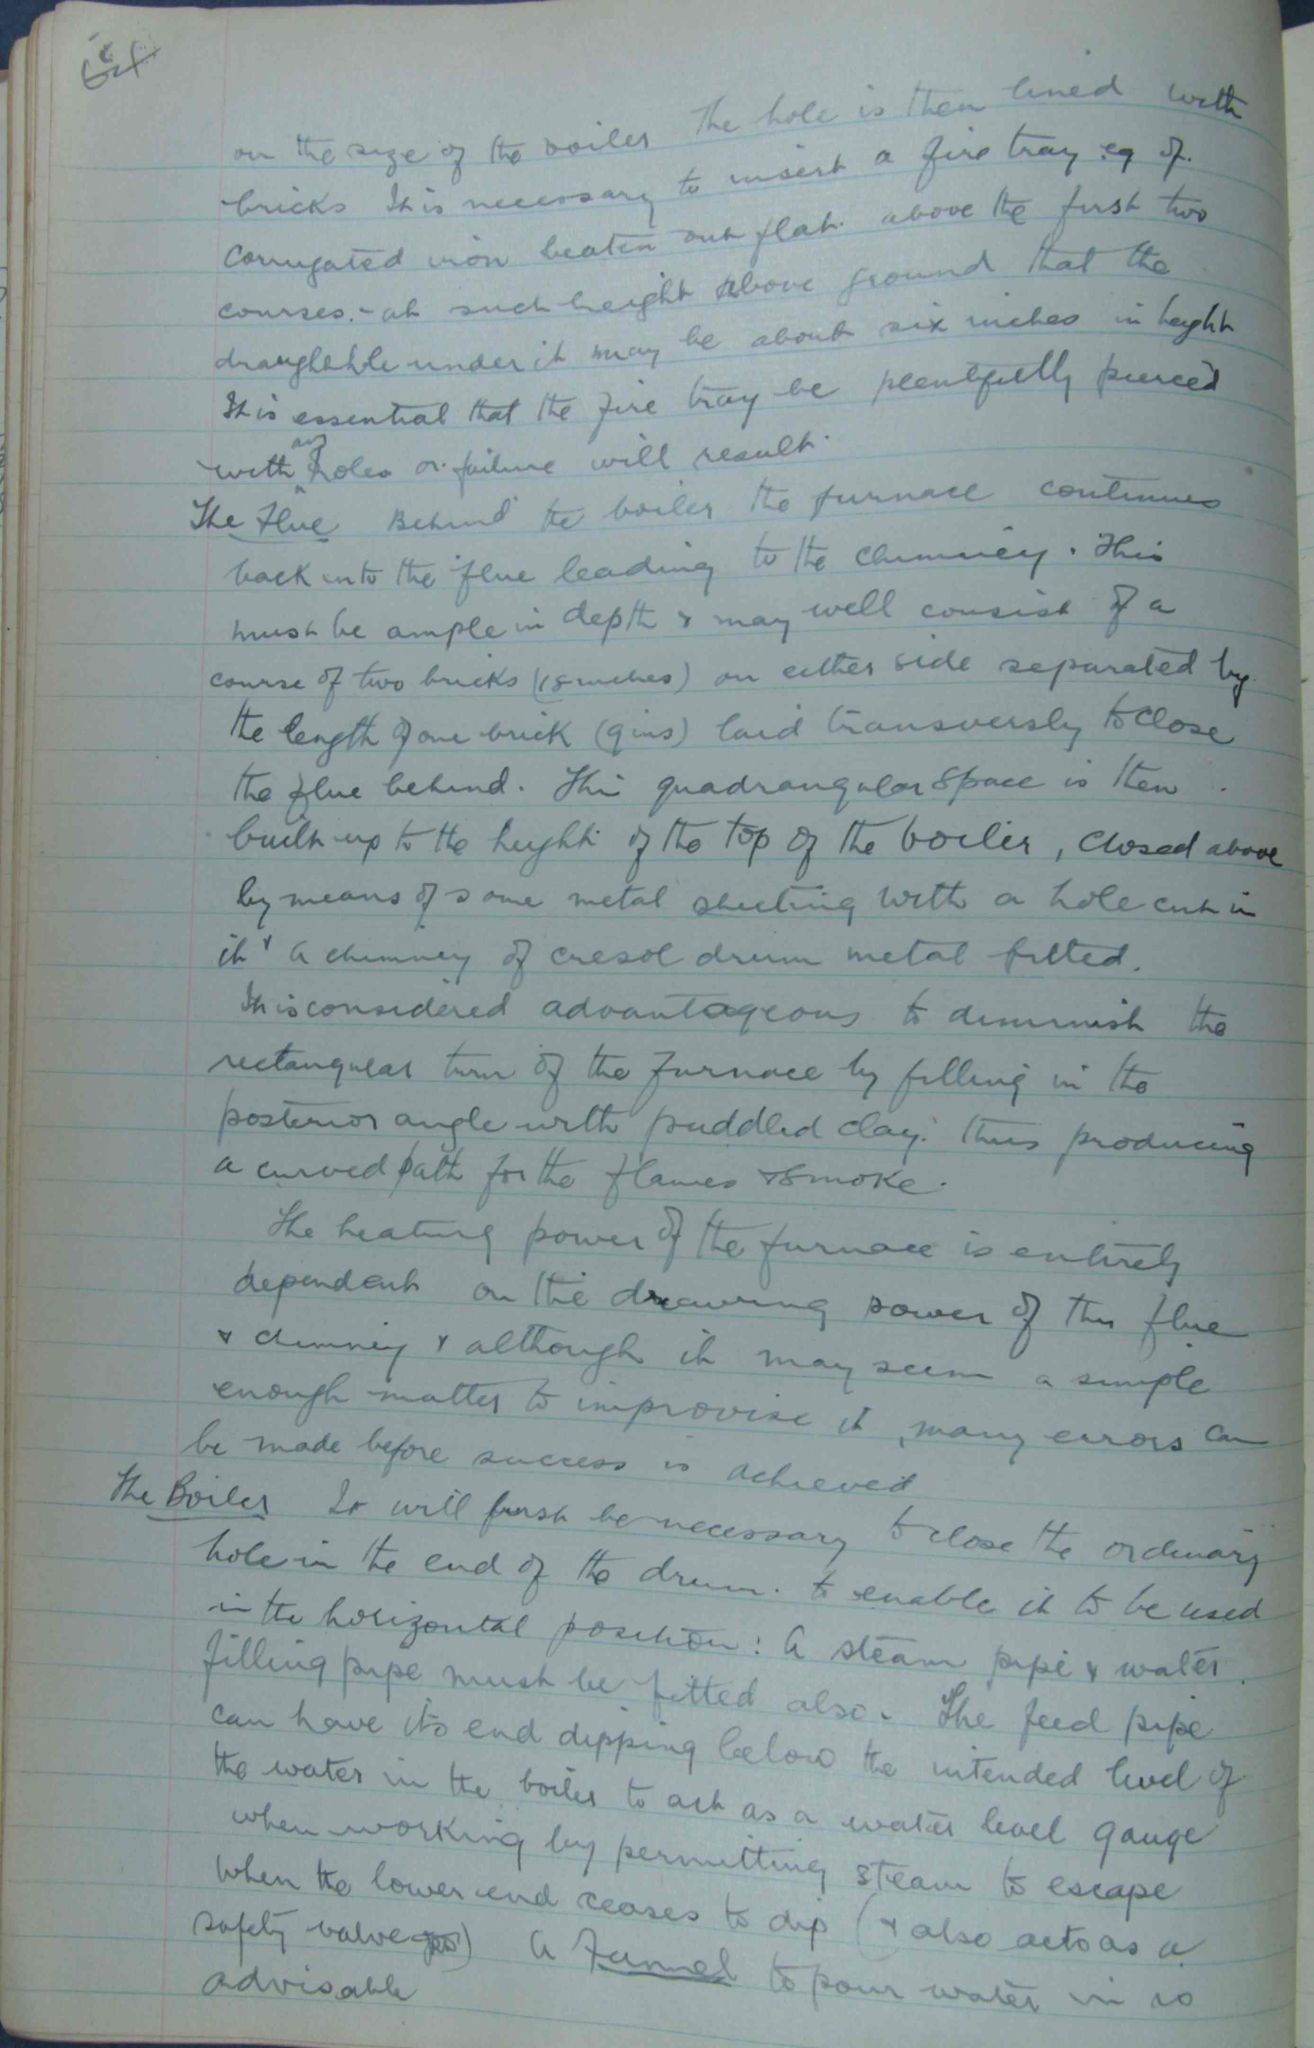 on the size of the boiler The hole is then lined with
bricks It is necessary to insert a fire tray eg of
corrugated iron beaten out flat. above the first two
courses.- at such height above ground that the
draughthole under it may be about six inches in height
It is essential that the fire tray be plentifully pierced
with holes or failure will result.
The Flue Behind the boiler the furnace continues
back into the flue leading to the chimney. This
must be ample in depth & may well consist of a
course of two bricks (18 inches) on either side separated by
the length of one brick (9 ins) laid transversly to close
the flue behind. This quadrangular space is then
built up to the height of the top of the boiler, closed above
by means of some metal sheeting with a hole cut in
it & a chimney of cresol drum metal fitted.
It is considered advantageous to diminish the
rectangular turn of the furnace by filling in the
posterior angle with puddled clay. thus producing
a curved path for the flames & smoke.
The heating power of the furnace is entirely
dependent on the drawing power of this flue
& chimney & although it may seem a simple
enough matter to improvise it, many errors can
be made before success is achieved
The Boiler It will first be necessary to close the ordinary
hole in the end of the drum. to enable it to be used
in the horizontal position: A steam pipe & water
filling pipe must be fitted also. The feed pipe
can have its end dipping below the intended level of
the water in the boiler to act as a water level gauge
when working by permitting steam to escape
when the lower end ceases to dip (& also acts as a
safety valve) A Funnel to pour water in is
advisable